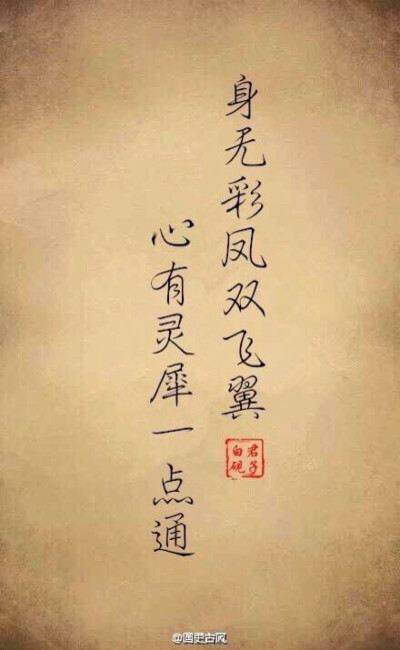 身无彩凤双飞翼
心有灵犀一点通
君子
白砚
@国史古风